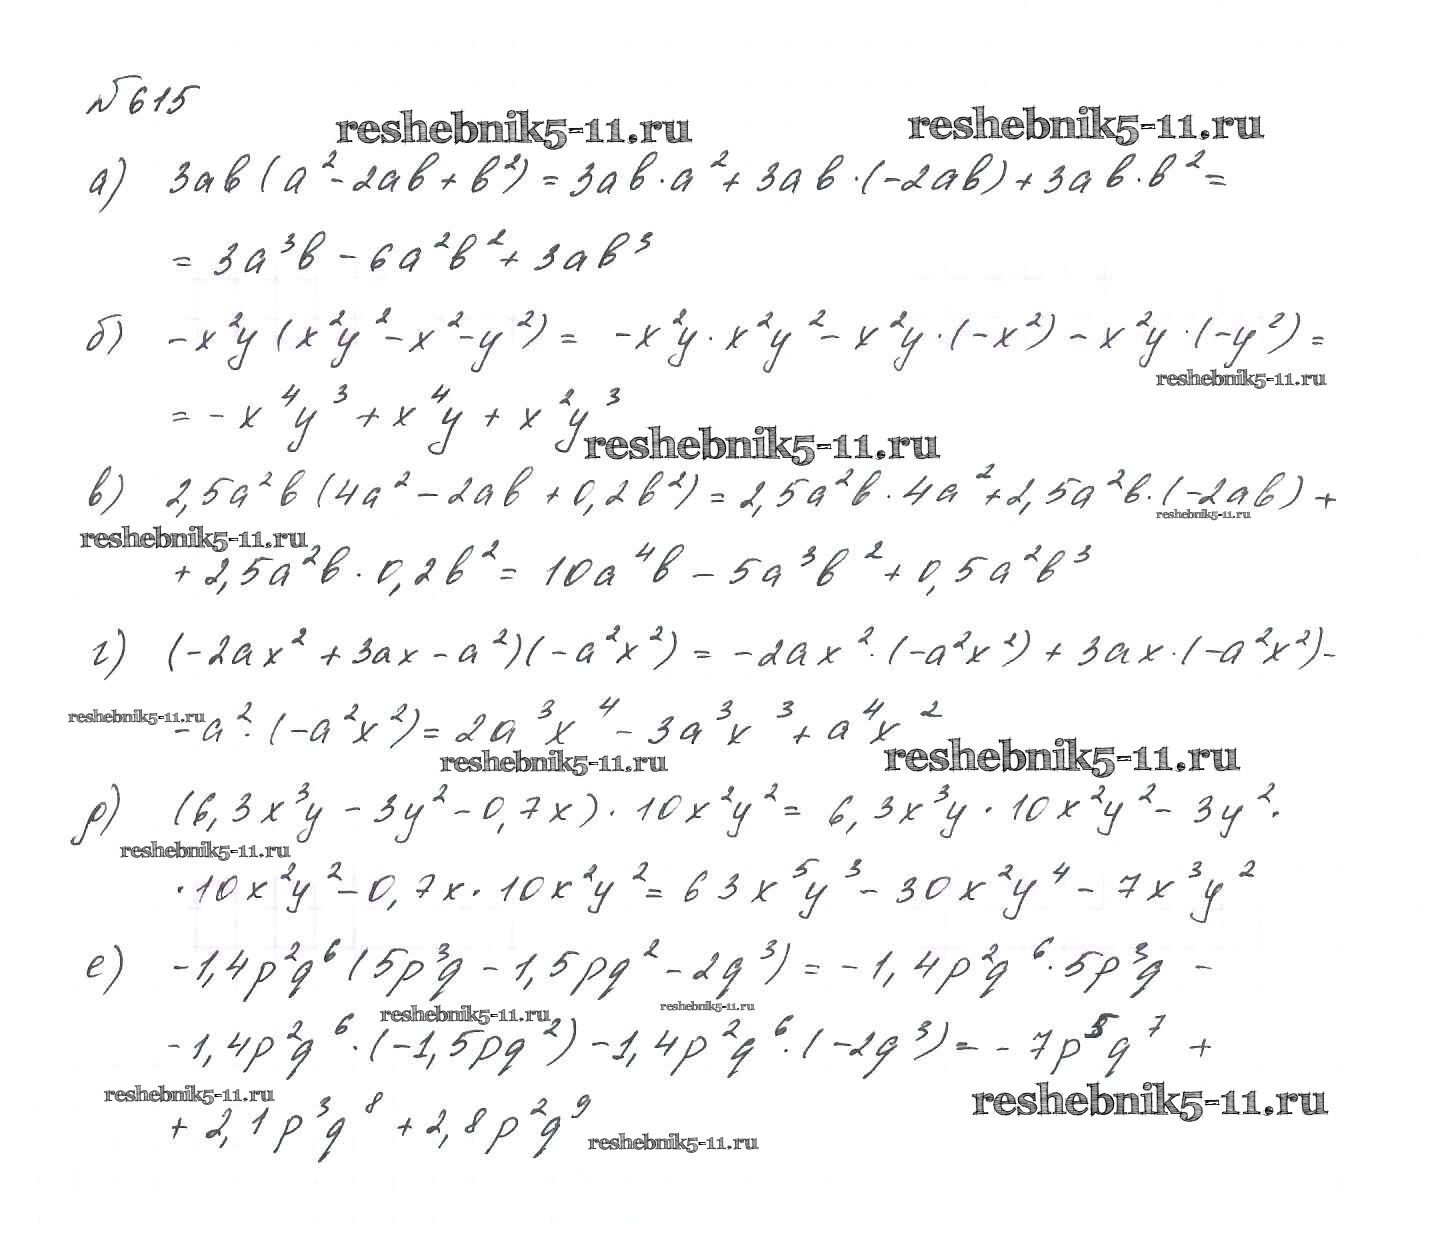 №615
reshebnik5-11.ru reshebnik5-11.ru
а) 3ab(a²-2ab+b²)=3ab·a²+3ab·(-2ab)+3ab·b²=
=3a³b-6a²b²+3ab³
б) -x²y(x²y²-x²-y²)= -x²y·x²y²-x²y·(-x²)-x²y·(-y²)=
reshebnik5-11.ru
=-x⁴y³+x⁴y+x²y³
reshebnik5-11.ru
в) 2,5a²b(4a²-2ab+0,2b²)=2,5a²b·4a²+2,5a²b·(-2ab)+
reshebnik5-11.ru
reshebnik5-11.ru
+2,5a²b·0,2b²=10a⁴b-5a³b²+0,5a²b³
г) (-2ax²+3ax-a²)(-a²x²)=-2ax²·(-a²x²)+3ax·(-a²x²)-
reshebnik5-11.ru
-a²·(-a²x²)=2a³x⁴-3a³x³+a⁴x²
reshebnik5-11.ru reshebnik5-11.ru
д) (6,3x³y-3y²-0,7x)·10x²y²=6,3x³y·10x²y²-3y²·
reshebnik5-11.ru
·10x²y²-0,7x·10x²y²=63x⁵y³-30x²y⁴-7x³y²
е) -1,4p²q⁶(5p³q-1,5pq²-2q³)=-1,4p²q⁶·5p³q-
reshebnik5-11.ru reshebnik5-11.ru
-1,4p²q⁶·(-1,5pq²)-1,4p²q⁶·(-2q³)=-7p⁵q⁷+
reshebnik5-11.ru reshebnik5-11.ru
+2,1p³q⁸+2,8p²q⁹
reshebnik5-11.ru